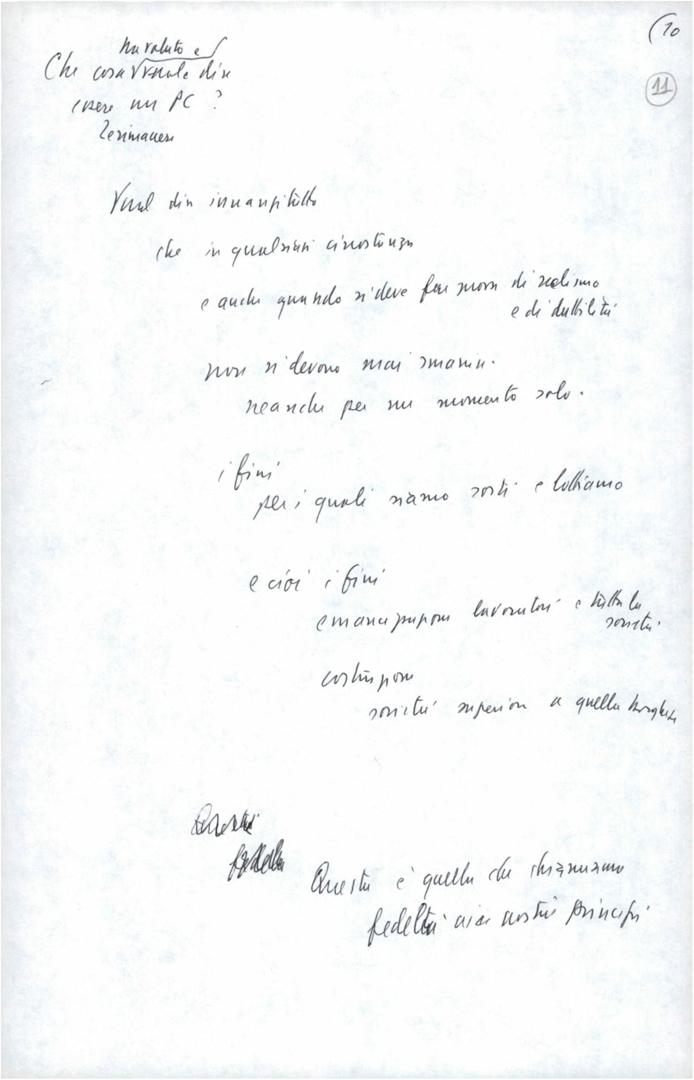 (10
11
ha voluto e
Che cosa vuole dire
essere un PC?
Rerimanere
Vuol dire innanzitutto
che in qualsiasi circostanza
e anche quando si deve far prova di realismo
e di duttilità
non si devono mai smarrire.
neanche per un momento solo.
i fini
per i quali siamo sorti e lottiamo
e cioè i fini
emancipazione lavoratori e tutta la
società.
costruzione
società superiore a quella borghese
Questa
fedeltà
Questa è quella che chiamiamo
fedeltà ai nostri principi